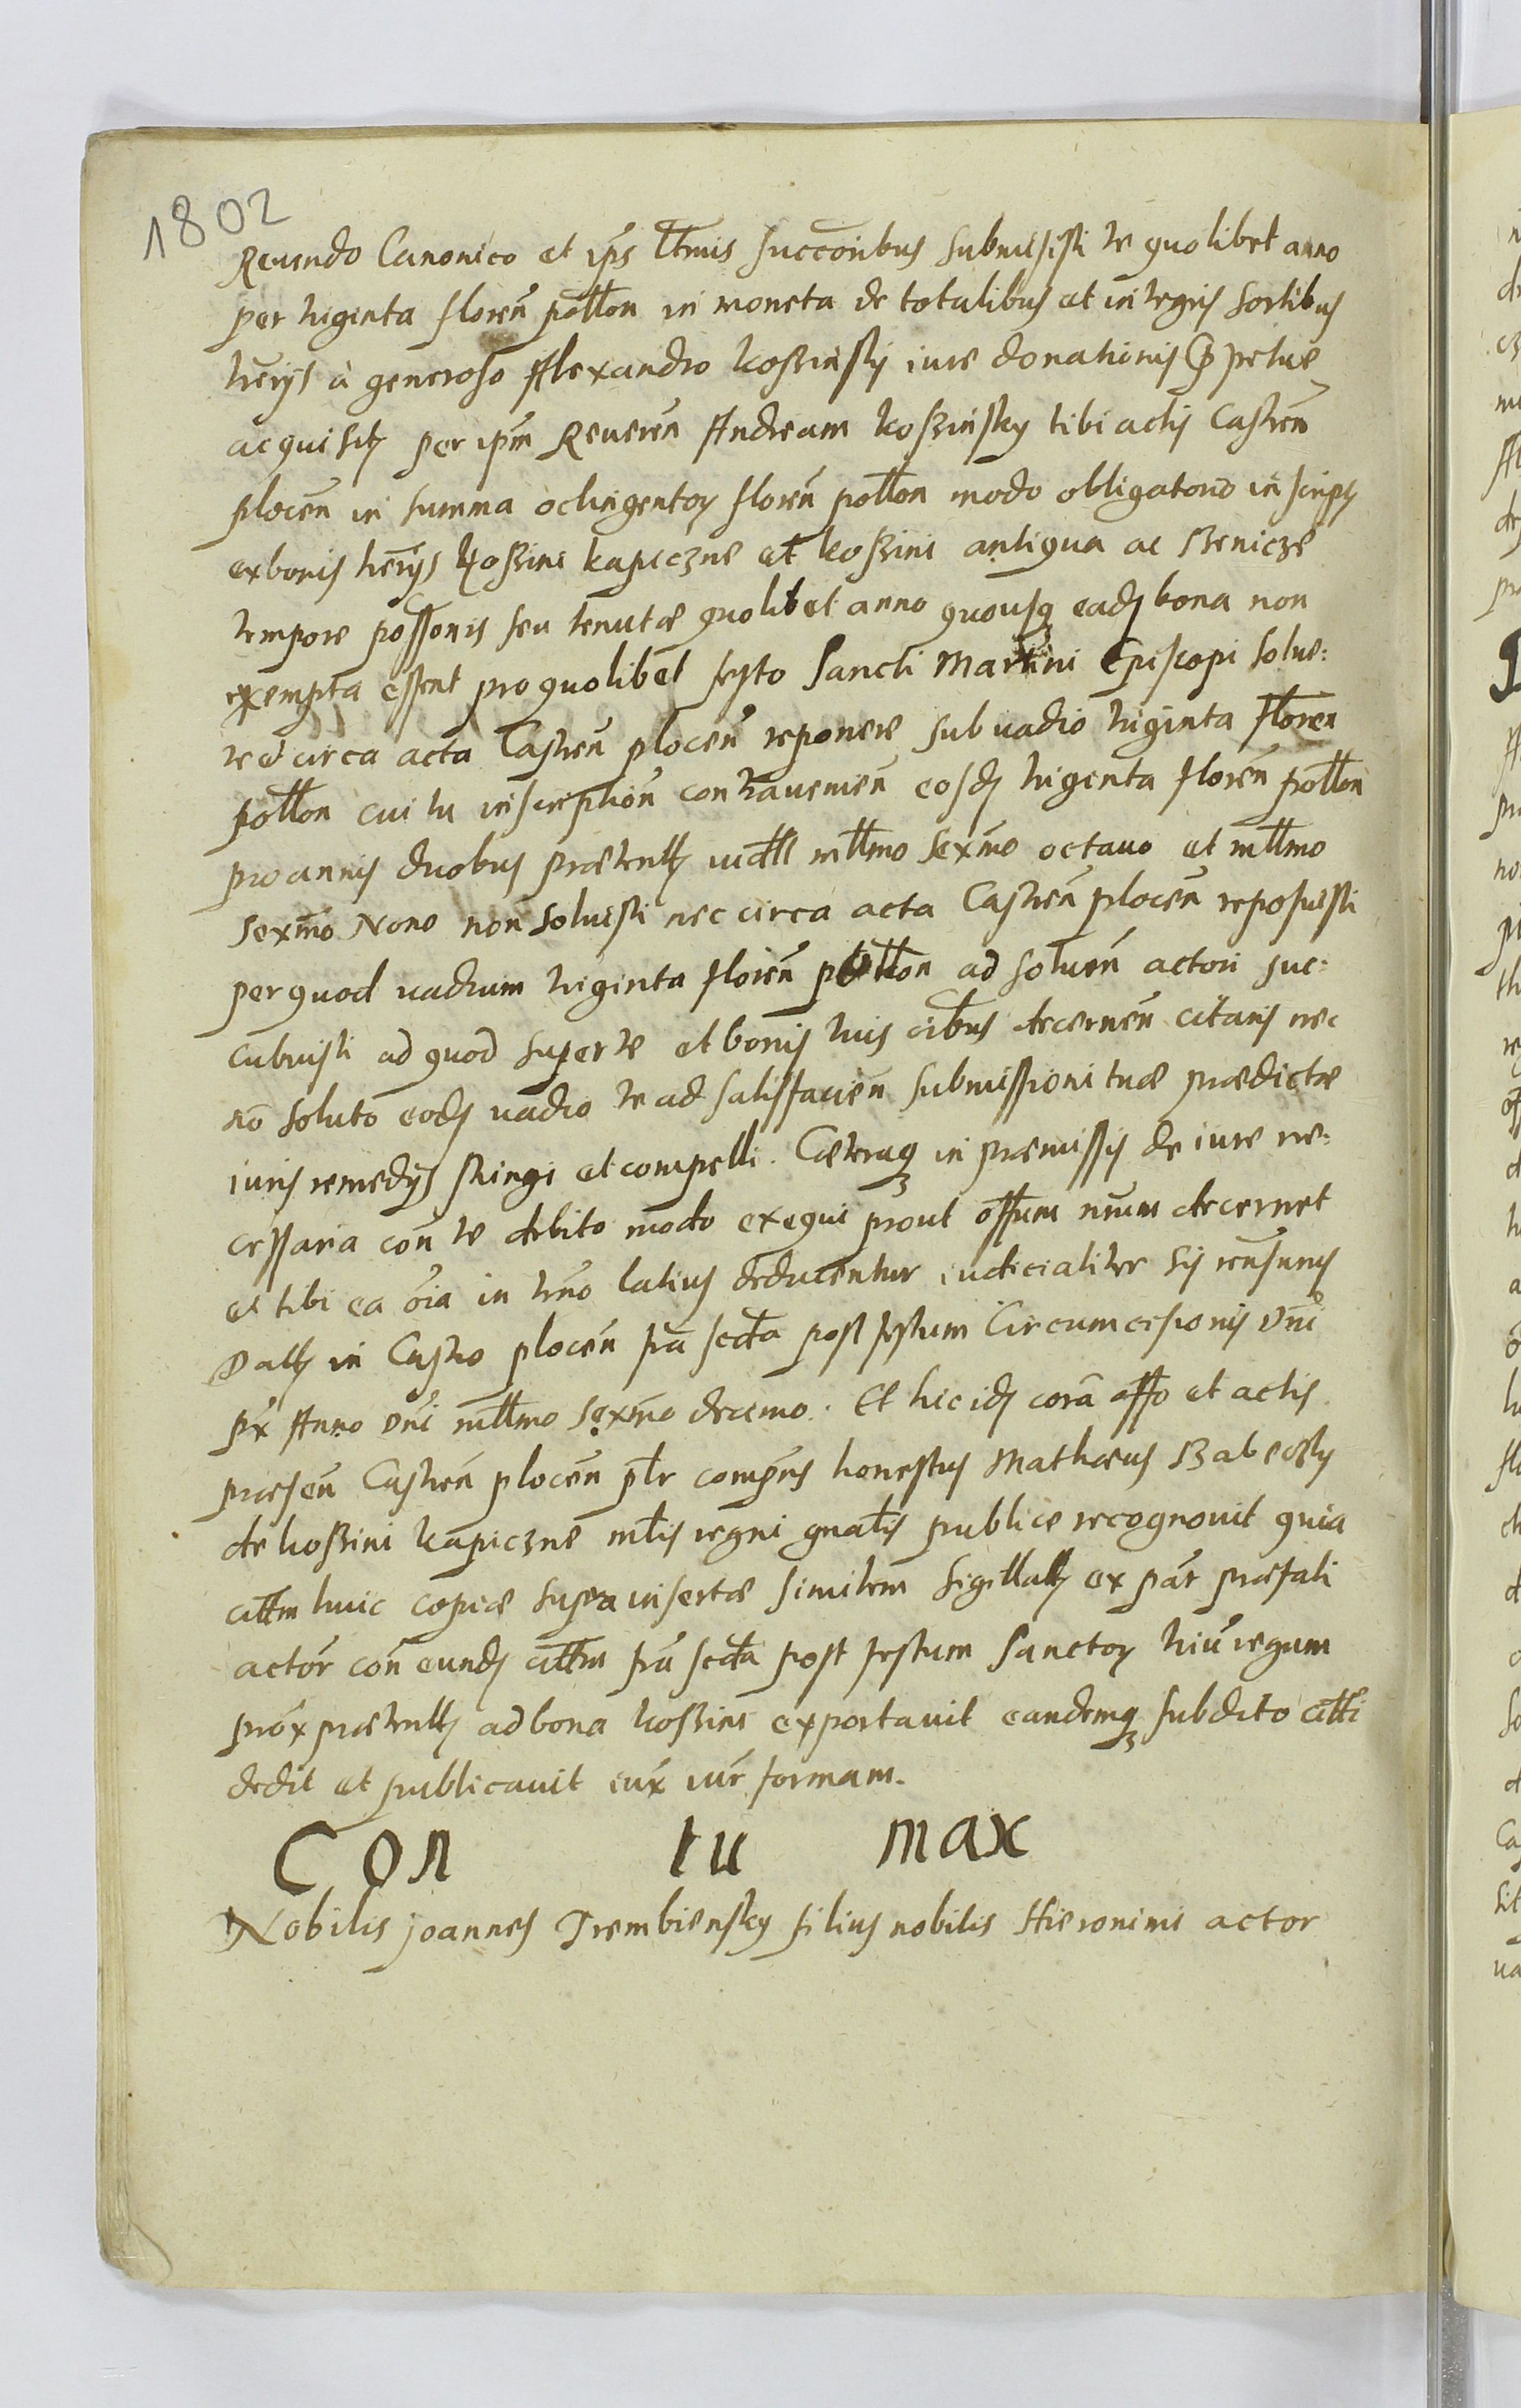 1802
Reuendo Canonico et ips lttmis succoribus submisisti te quolibet anno
per triginta floren pollon in moneta de totalibus et integris sortibus
terrijs à generoso Alexandro Kossinskij iure donationis ppetue
acquisitis per ipm Reueren Andream Kossinsky tibi actis Castren
plocen in summa octingentor floren pollon modo obligatorio inscriptis
ex bonis terrijs Kossini kapiczne et Kossini antiqua ac Bienicze
tempore possonis seu tenutæ quolibet anno quousq eadem bona non
exempta essent pro quolibet festo Sancti Martini Episcopi solue:
re et circa acta Castren plocen reponere sub uadio triginta floren
pollon cui tu inscription contrauenien eosdem triginta floren pollon
pro annis duobus præteritis uidctt mttmo sexmo octauo et mttmo
sexmo Nono non soluisti nec circa acta Castren plocen reposuisti
per quod uadium triginta floren pollon ad soluen actori suc:
cubuisti ad quod super te et bonis tuis oibus decernen citaris nec
no soluto eodem uadio te ad satisfacien submissioni tuæ prædictæ
iuris remedijs stringi et compelli. Cæteraq in præmissis de iure ne:
cessaria con te debito modo exequi prout offum nrum decernet
et tibi ea oia in trno latius deducentur iudicialiter sis rensurus
Datt in Castro plocen fra secta post festum Circumcisionis Dni
px Anno Dni mttmo sexmo decimo. Et hic idem corã offo et actis
præsen Castren plocen pltr compns honestus Mathæus Babeczky
de kossini kapiczne mtlis regni gnalis publice recognouit quia
citttm huic copiæ supra insertæ similem sigillatt ex par præfati
actor con eundem citttm fra secta post festum Sanctor triu regum
prox præteritt ad bona kossini exportauit eandemq subdito cittti
dedit et publicauit iux iur formam.
Con tu max
Nobilis Joannes Trembiensky filius nobilis Hieronimi actor